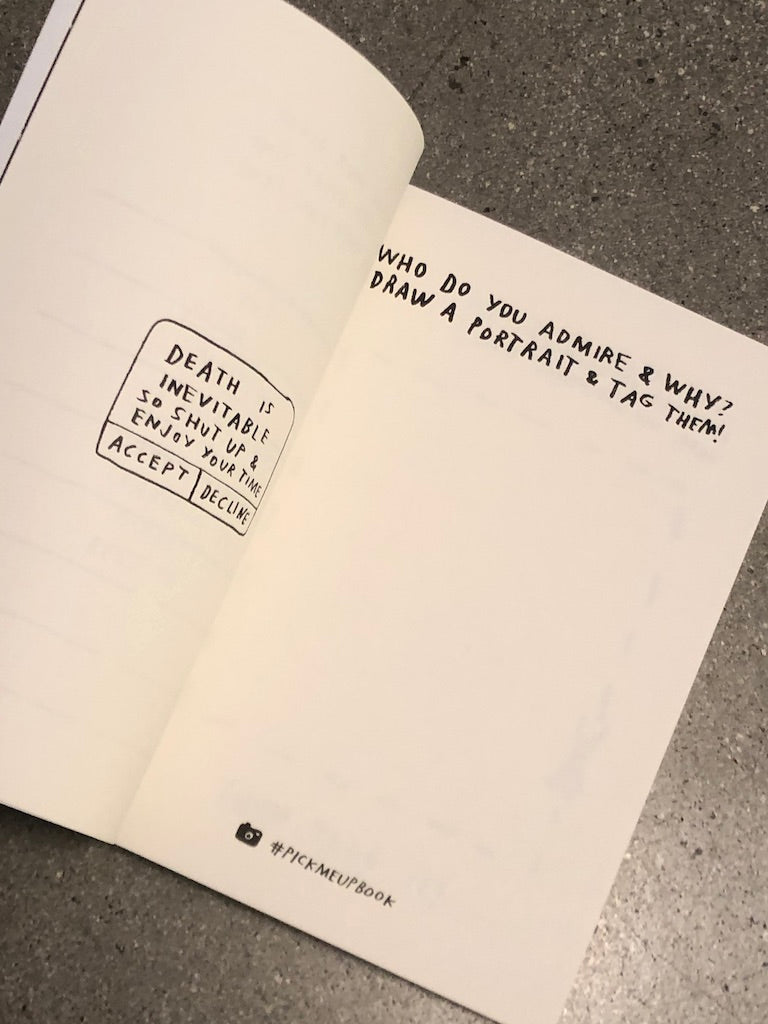 DEATH IS
INEVITABLE
SO SHUT UP &
ENJOY YOUR TIME
ACCEPT
DECLINE
WHO DO YOU ADMIRE & WHY?
DRAW A PORTRAIT & TAG THEM!
#PICKMEUPBOOK